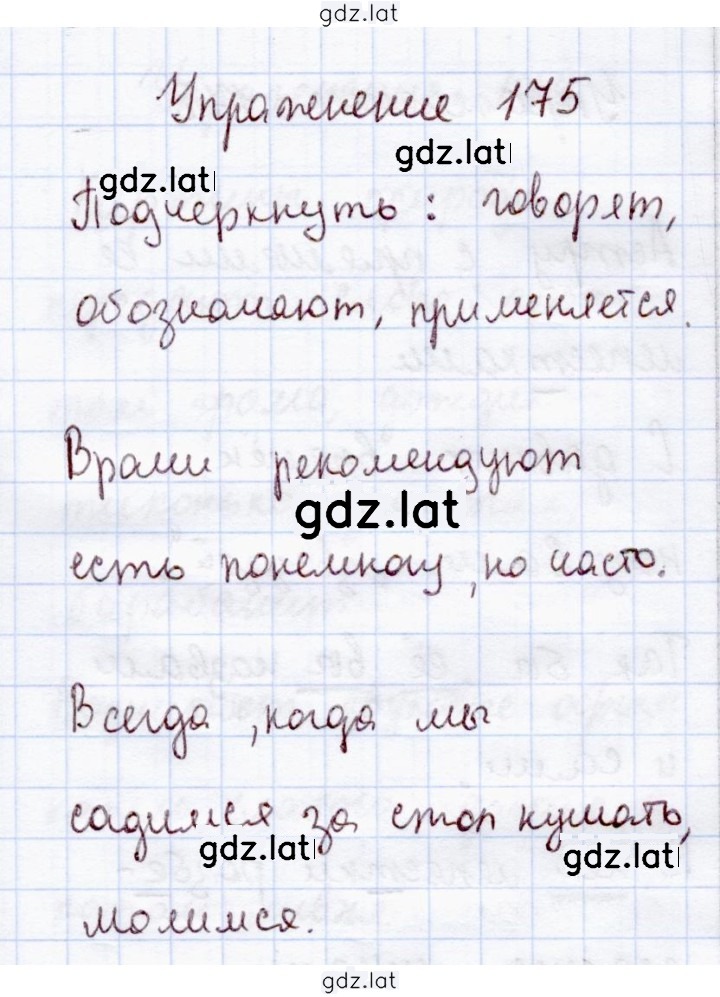 gdz.lat
Упражнение 175
gdz.lat
gdz.lat
Подчеркнуть: говорят,
обозначают, применяется.
Врачи рекомендуют
gdz.lat
есть понемногу, но часто.
Всегда, когда мы
садимся за стол кушать,
gdz.lat
gdz.lat
молимся.
gdz.lat